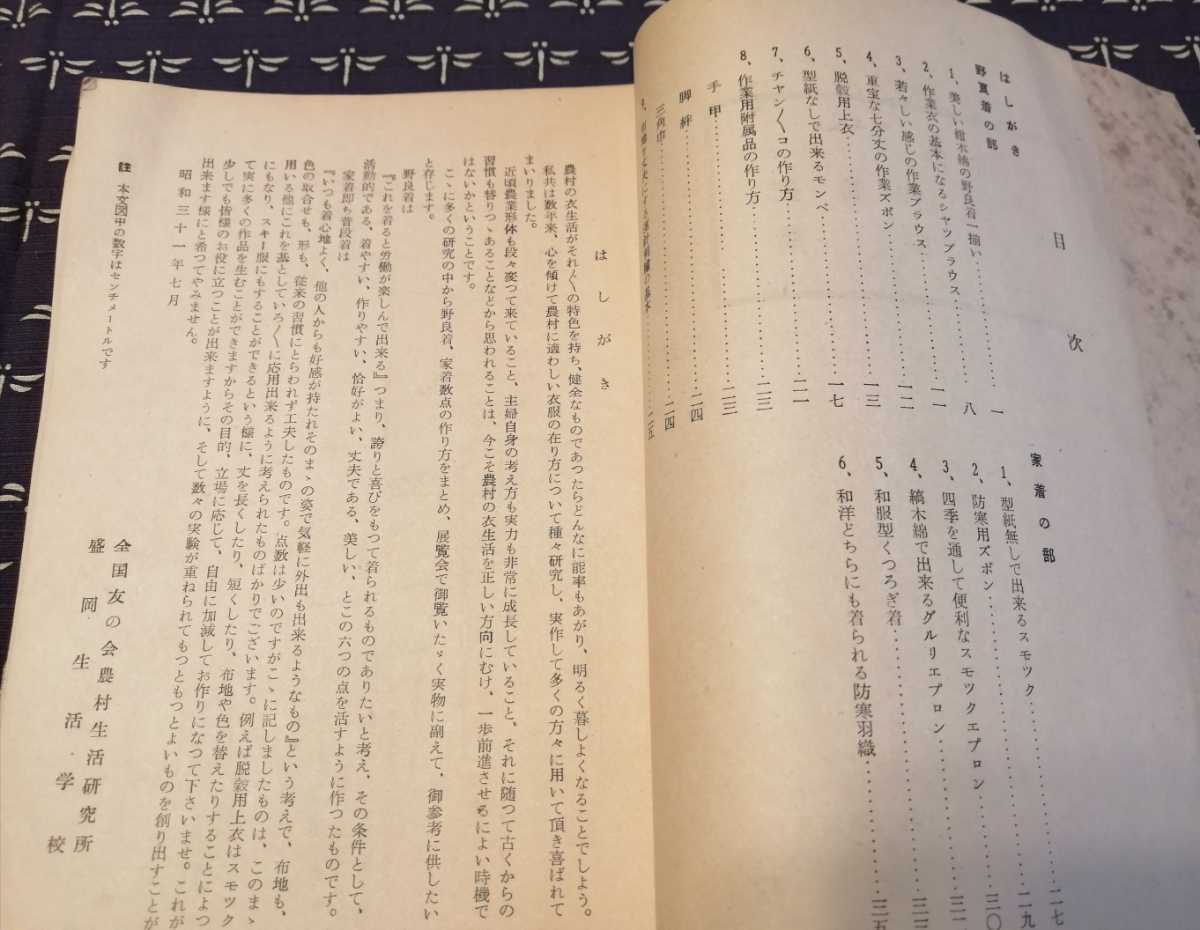 目次
はしがき
野良着の部
1、美しい紺木綿の野良着一揃い…………一
2、作業衣の基本になるシャツブラウス……八
3、若々しい感じの作業ブラウス…………一一
4、重宝な七分丈の作業ズボン…………一二
5、脱穀用上衣…………一三
6、型紙なしで出来るモンペ…………一七
7、チヤン〳〵コの作り方…………二一
8、作業用附属品の作り方…………二三
手甲…………二三
脚絆…………二四
三角巾…………二四
家着の部
1、型紙無しで出来るスモツク…………二七
2、防寒用ズボン…………二九
3、四季を通して便利なスモツクエプロン…………三〇
4、縞木綿で出来るグルリエプロン
5、和服型くつろぎ着
6、和洋どちらにも着られる防寒羽織…………三五
はしがき
農村の衣生活がそれ〴〵の特色を持ち、健全なものであつたらどんなに能率もあがり、明るく暮しよくなることでしよう。
私共は数年来、心を傾けて農村に適わしい衣服の在り方について種々研究し、実作して多くの方々に用いて頂き喜ばれて
まいりました。
近頃農業形体も段々変つて来ていること、主婦自身の考え方も実力も非常に成長していること、それに随つて古くからの
習慣も替りつゝあることなどから思われることは、今こそ農村の衣生活を正しい方向にむけ、一歩前進させるによい時機で
はないかということです。
こゝに多くの研究の中から野良着、家着数点の作り方をまとめ、展覧会で御覧いたゞく実物に副えて、御参考に供したい
と存じます。
野良着は
『これを着ると労働が楽しんで出来る』つまり、誇りと喜びをもつて着られるものでありたいと考え、その条件として、
活動的である、着やすい、作りやすい、恰好がよい、丈夫である、美しい、とこの六つの点を活すように作つたものです。
家着即ち普段着は
『いつも着心地よく、他の人からも好感が持たれそのまゝの姿で気軽に外出も出来るようなもの』という考えで、布地も、
色の取合せも、形も、従来の習慣にとらわれず工夫したものです。点数は少いのですがこゝに記しましたものは、このまゝ
用いる他にこれを基としていろ〳〵に応用出来るように考えられたものばかりでございます。例えば脱穀用上衣はスモツク
にもなり、スキー服にもすることができるという様に、丈を長くしたり、短くしたり、布地や色を替えたりすることによつ
て実に多くの作品を生むことができますからその目的、立場に応じて、自由に加減してお作りになつて下さいませ。これが
少しでも皆様のお役に立つことが出来ますように、そして数々の実験が重ねられてもつともつとよいものを創り出すことが
出来ます様にと希つてやみません。
昭和三十一年七月
全国友の会農村生活研究所
盛岡生活学校
註 本文図中の数字はセンチメートルです